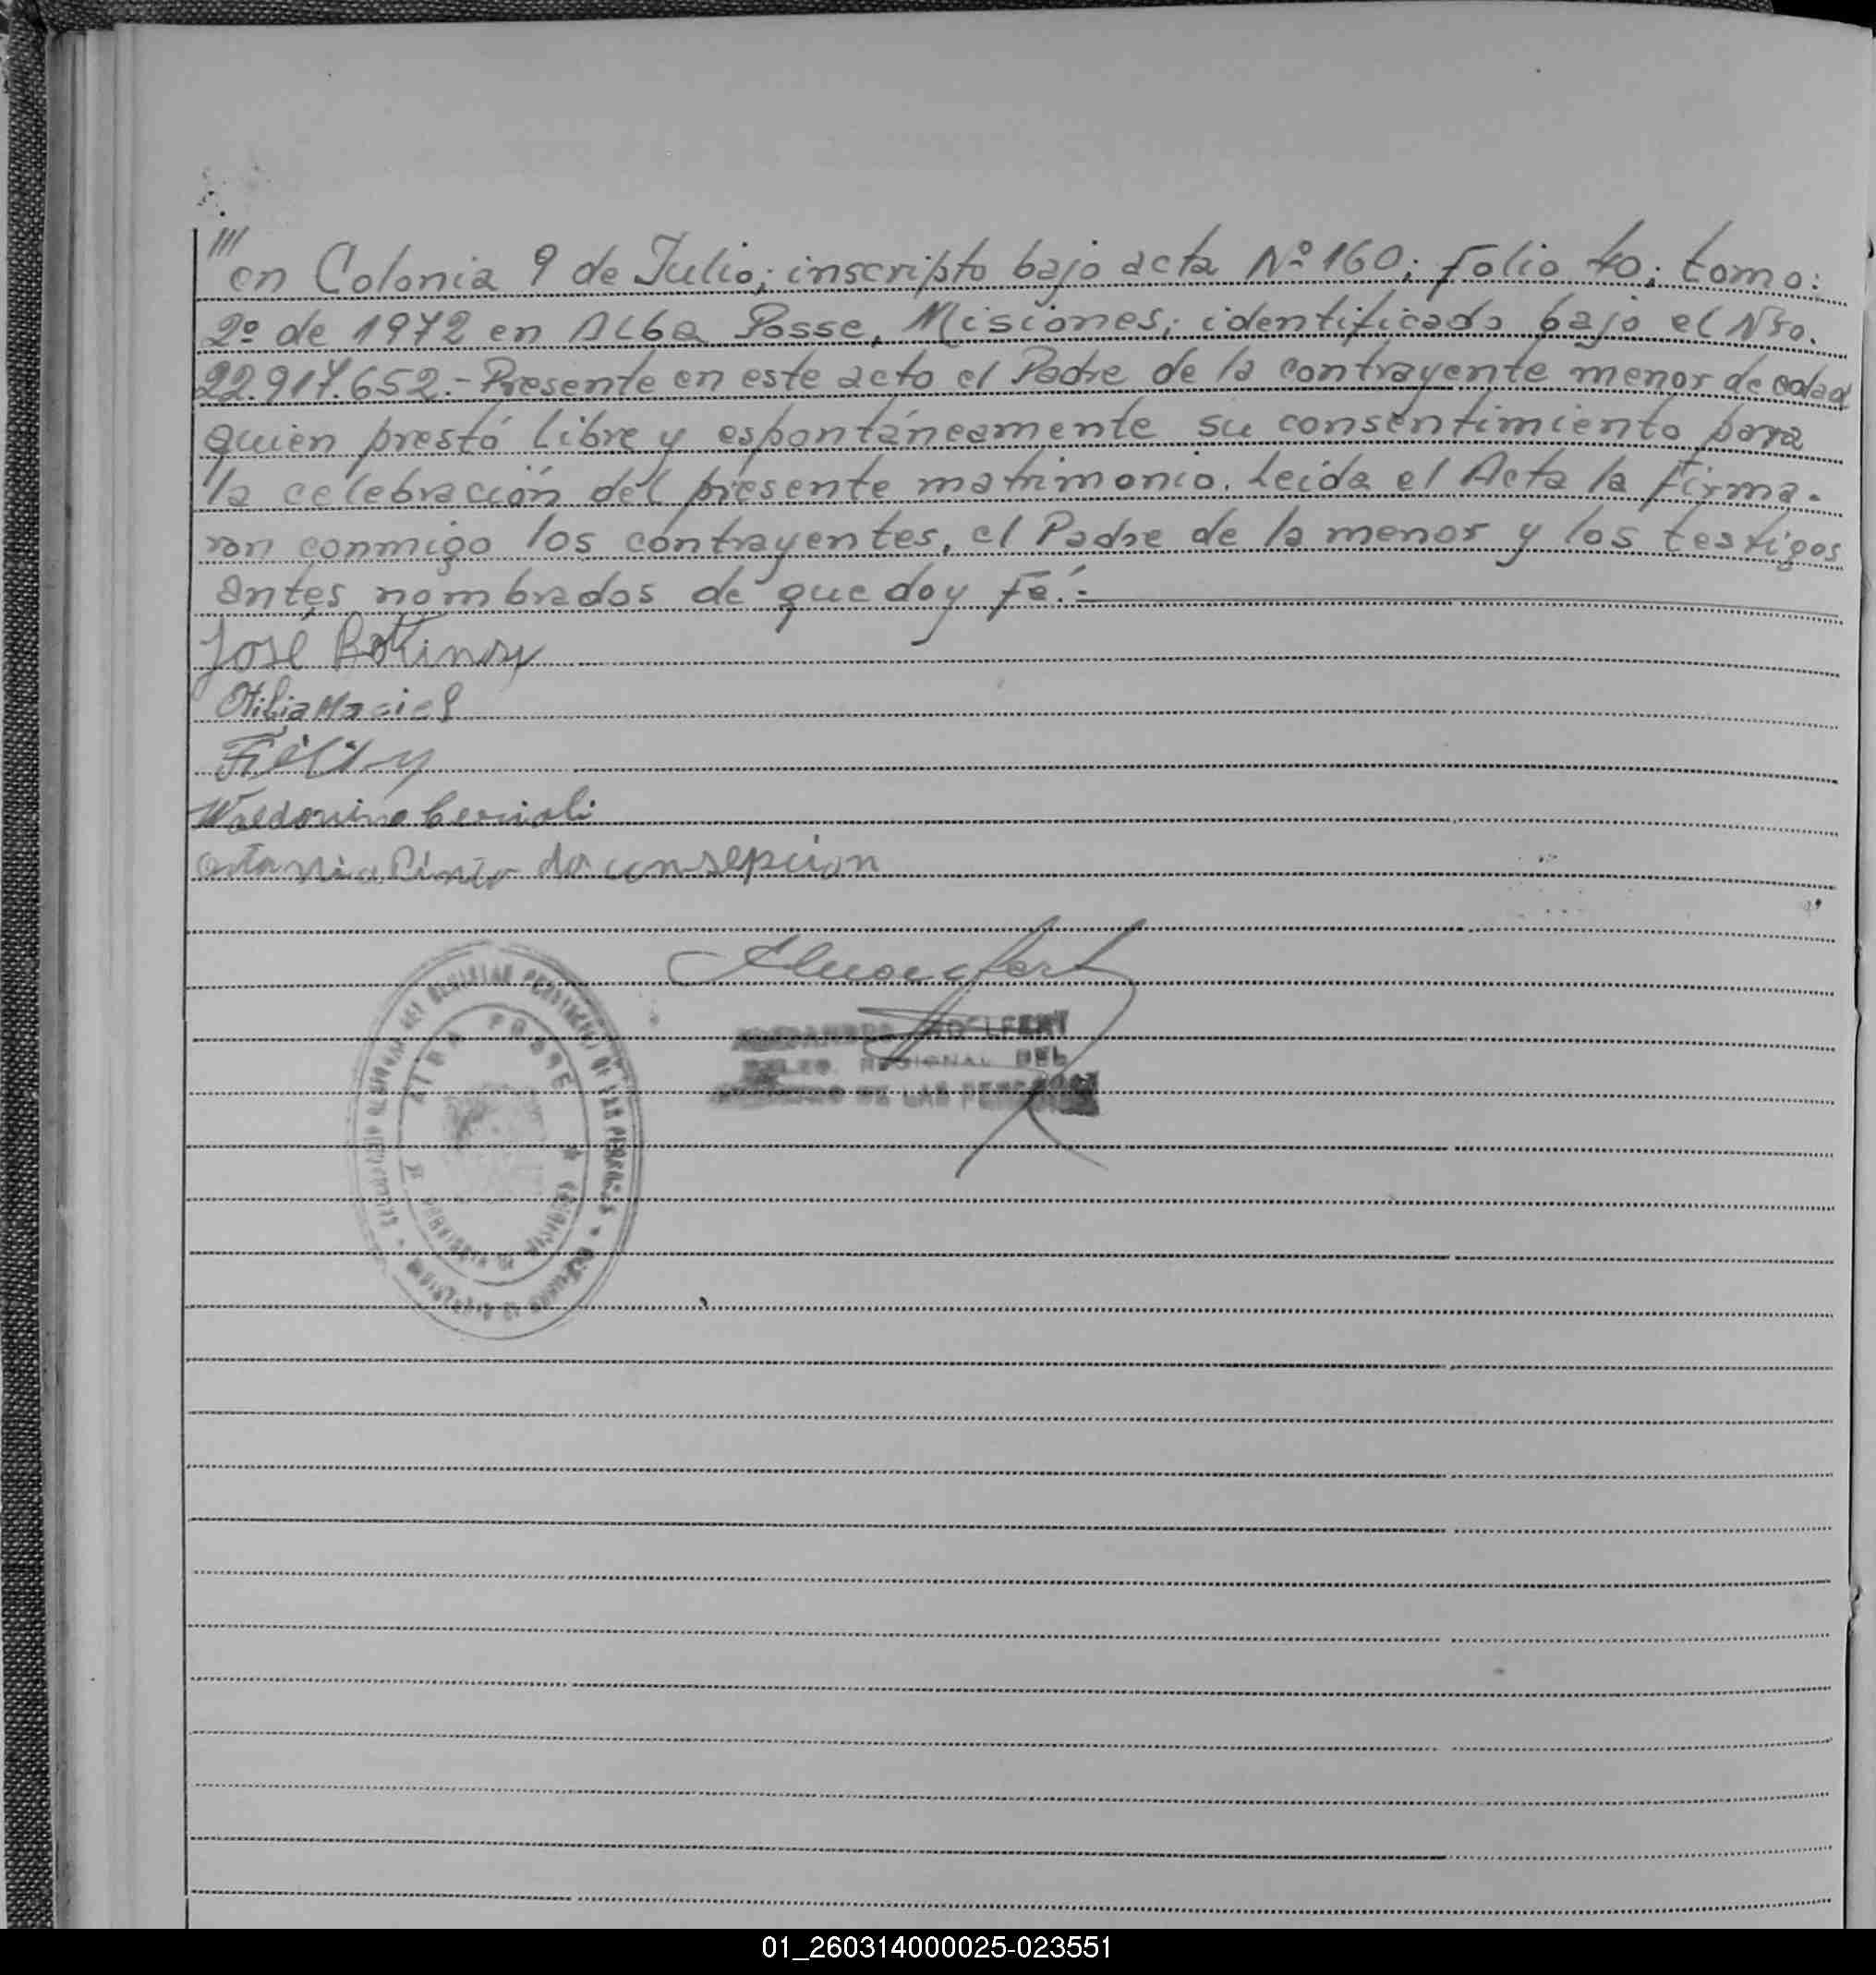 ///
en Colonia 9 de Julio; inscripto bajo acta Nº 160; Folio 40; tomo:
2º de 1972 en Alba Posse, Misiones; identificado bajo el Nro.
22.917.652.- Presente en este acto el Padre de la contrayente menor de edad
quien prestó libre y espontáneamente su consentimiento para
la celebración del presente matrimonio. Leída el Acta la firma-
ron conmigo los contrayentes, el Padre de la menor y los testigos
antes nombrados de que doy Fé.-
José
Otilia Maciel
da consepcion
ALBA POSSE
REGIONAL DEL
DE LAS
01_260314000025-023551